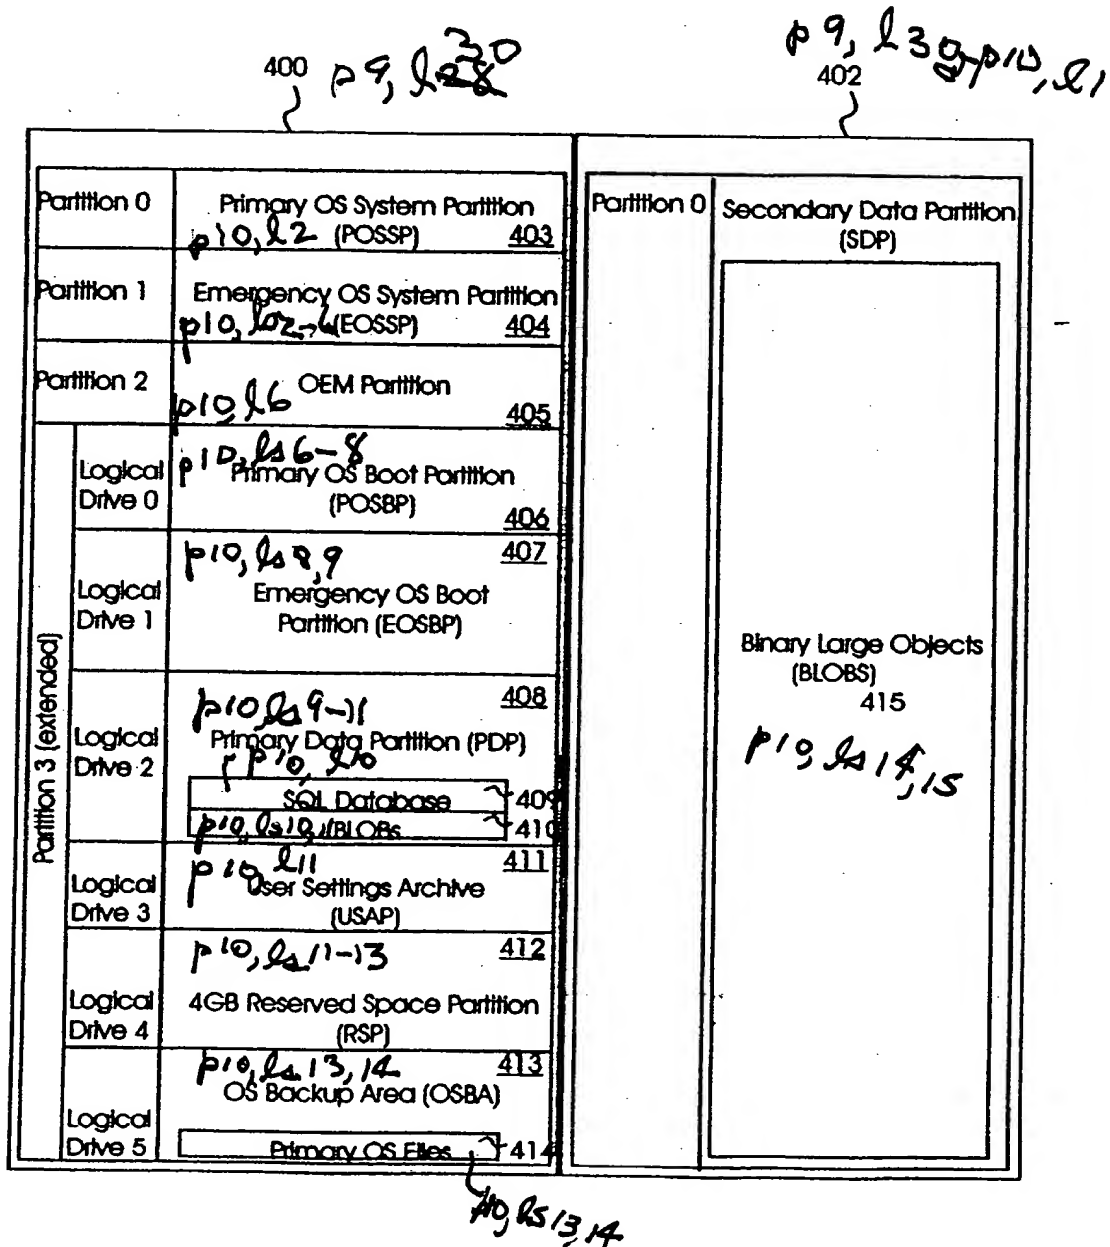 400 p9, l 30
p9, l30-p10, l1
402
Partition 0
Primary OS System Partition
p10, l2 (POSSP) 403
Partition 1
Emergency OS System Partition
(EOSSP) 404
Partition 2
OEM Partition
p10, l6 405
Partition 3 (extended)
Logical
Drive 0
p10, ls 6-8
Primary OS Boot Partition
(POSBP)
406
Logical
Drive 1
p10, ls 8,9 407
Emergency OS Boot
Partition (EOSBP)
Logical
Drive 2
p10, ls 9-11 408
Primary Data Partition (PDP)
p10, l10
SQL Database 409
BLOBs 410
Logical
Drive 3
p10, l11 411
User Settings Archive
(USAP)
Logical
Drive 4
p10, ls 11-13 412
4GB Reserved Space Partition
(RSP)
Logical
Drive 5
p10, ls 13, 14 413
OS Backup Area (OSBA)
Primary OS Files 414
p10, ls 13, 14
Partition 0
Secondary Data Partition
(SDP)
Binary Large Objects
(BLOBS)
415
p10, ls 14, 15